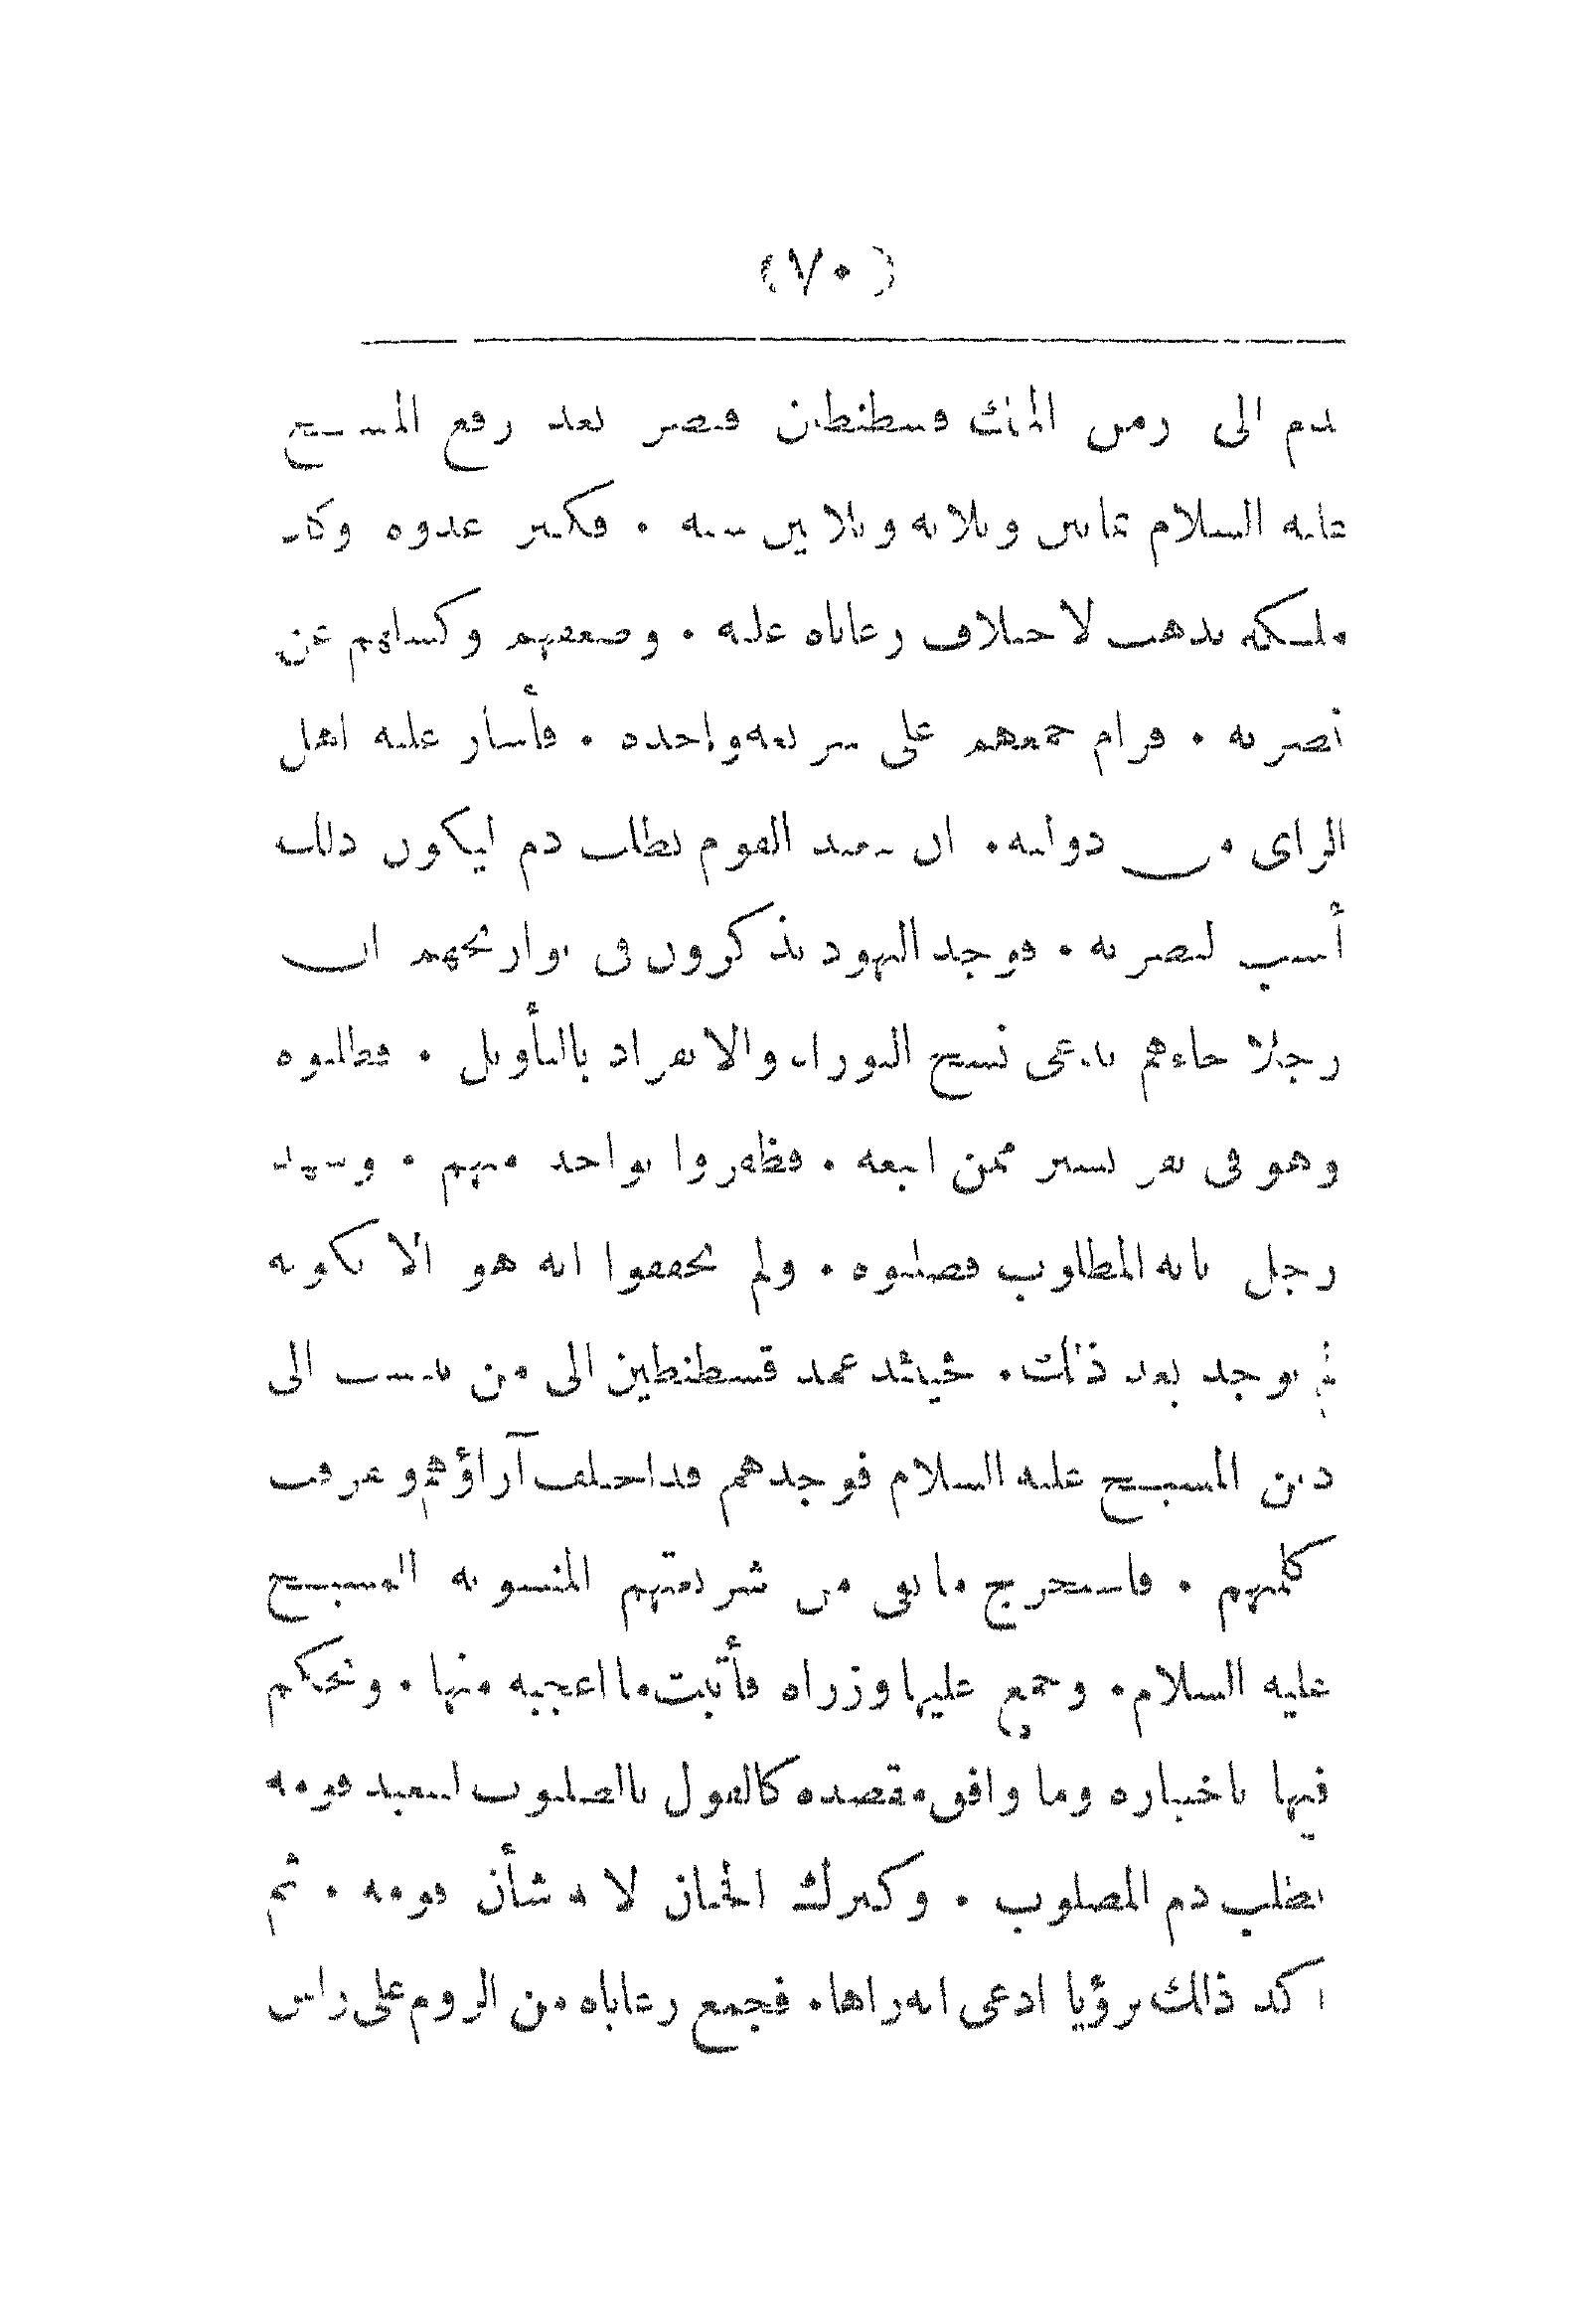 (٧٠)
بدم الى زمن الملك قسطنطين قيصر بعد رفع المسيح
عليه السلام بمائتين وثلاثة وثلاثين سنة . فكثر عدوه وكاد
ملكه يذهب لاختلاف رعاياه عليه . وضعفهم وكسلهم عن
نصرته . فرام جمعهم على شريعة واحدة . فأشار عليه اهل
الراى من دولته . ان يتعبد القوم بطلب دم ليكون ذلك
أسبب لنصرته . فوجد اليهود يذكرون فى تواريخهم ان
رجلا جاءهم يدعى نسخ التوراة والانفراد بالتأويل . فطلبوه
وهو فى نفر يسير ممن اتبعه . فظفروا بواحد منهم . وشهد
رجل بانه المطلوب فصلبوه . ولم يحققوا انه هو الا بكونه
لم يوجد بعد ذلك . فحينئذ عمد قسطنطين الى من ينتسب الى
دين المسيح عليه السلام فوجدهم قد اختلفت آراؤهم وتفرقت
كلمتهم . فاستخرج ما بقى من شريعتهم المنسوبة للمسيح
عليه السلام . وجمع عليها وزراه فأثبت ما اعجبه منها . وتحكم
فيها باختياره وما وافق مقصده كالقول بالصلبوت ليتعبد قومه
بطلب دم المصلوب . وكترك الختان لانه شأن قومه . ثم
اكد ذلك برؤيا ادعى انه راها . فجمع رعاياه من الروم على راس